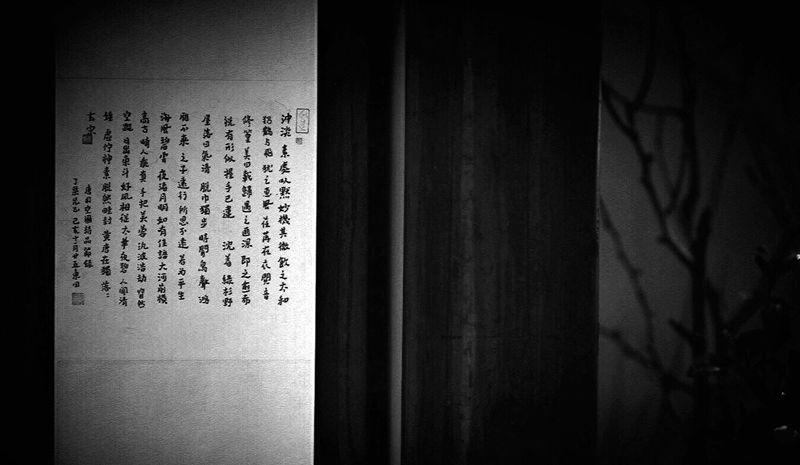 沖淡 素處以默妙機其微飲之太和
獨鶴與飛猶之惠風荏苒在衣閱音
修篁美曰載歸遇之匪深即之愈希
脫有形似握手已違 沈著 綠杉野
屋落日氣清脫巾獨步時聞鳥聲鴻
雁不來之子遠行所思不遠若為平生
海風碧雲夜渚月明如有佳語大河前橫
高古 畸人乘真手把芙蓉汎彼浩劫窅然
空蹤月出東斗好風相從太華夜碧人聞清
鐘虛佇神素脫然畦封黃唐在獨落:
玄宗
唐司空圖詩品節錄
己亥十月廿五東田